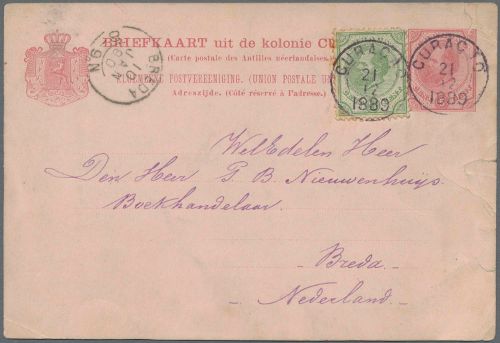 BRIEFKAART uit de kolonie CU
(Carte postale des Antilles néerlandaises
ALGEMEENE POSTVEREENIGING. (UNION POSTALE U
Adreszijde. (Côté réservé à l'adresse.)
CURAÇAO
21
12
1889
CURAÇAO
21
12
1889
BREDA
10
JAN
90
WelEdelen Heer
Den Heer P. B. Nieuwenhuijs
Boekhandelaar
Breda.
- Nederland -